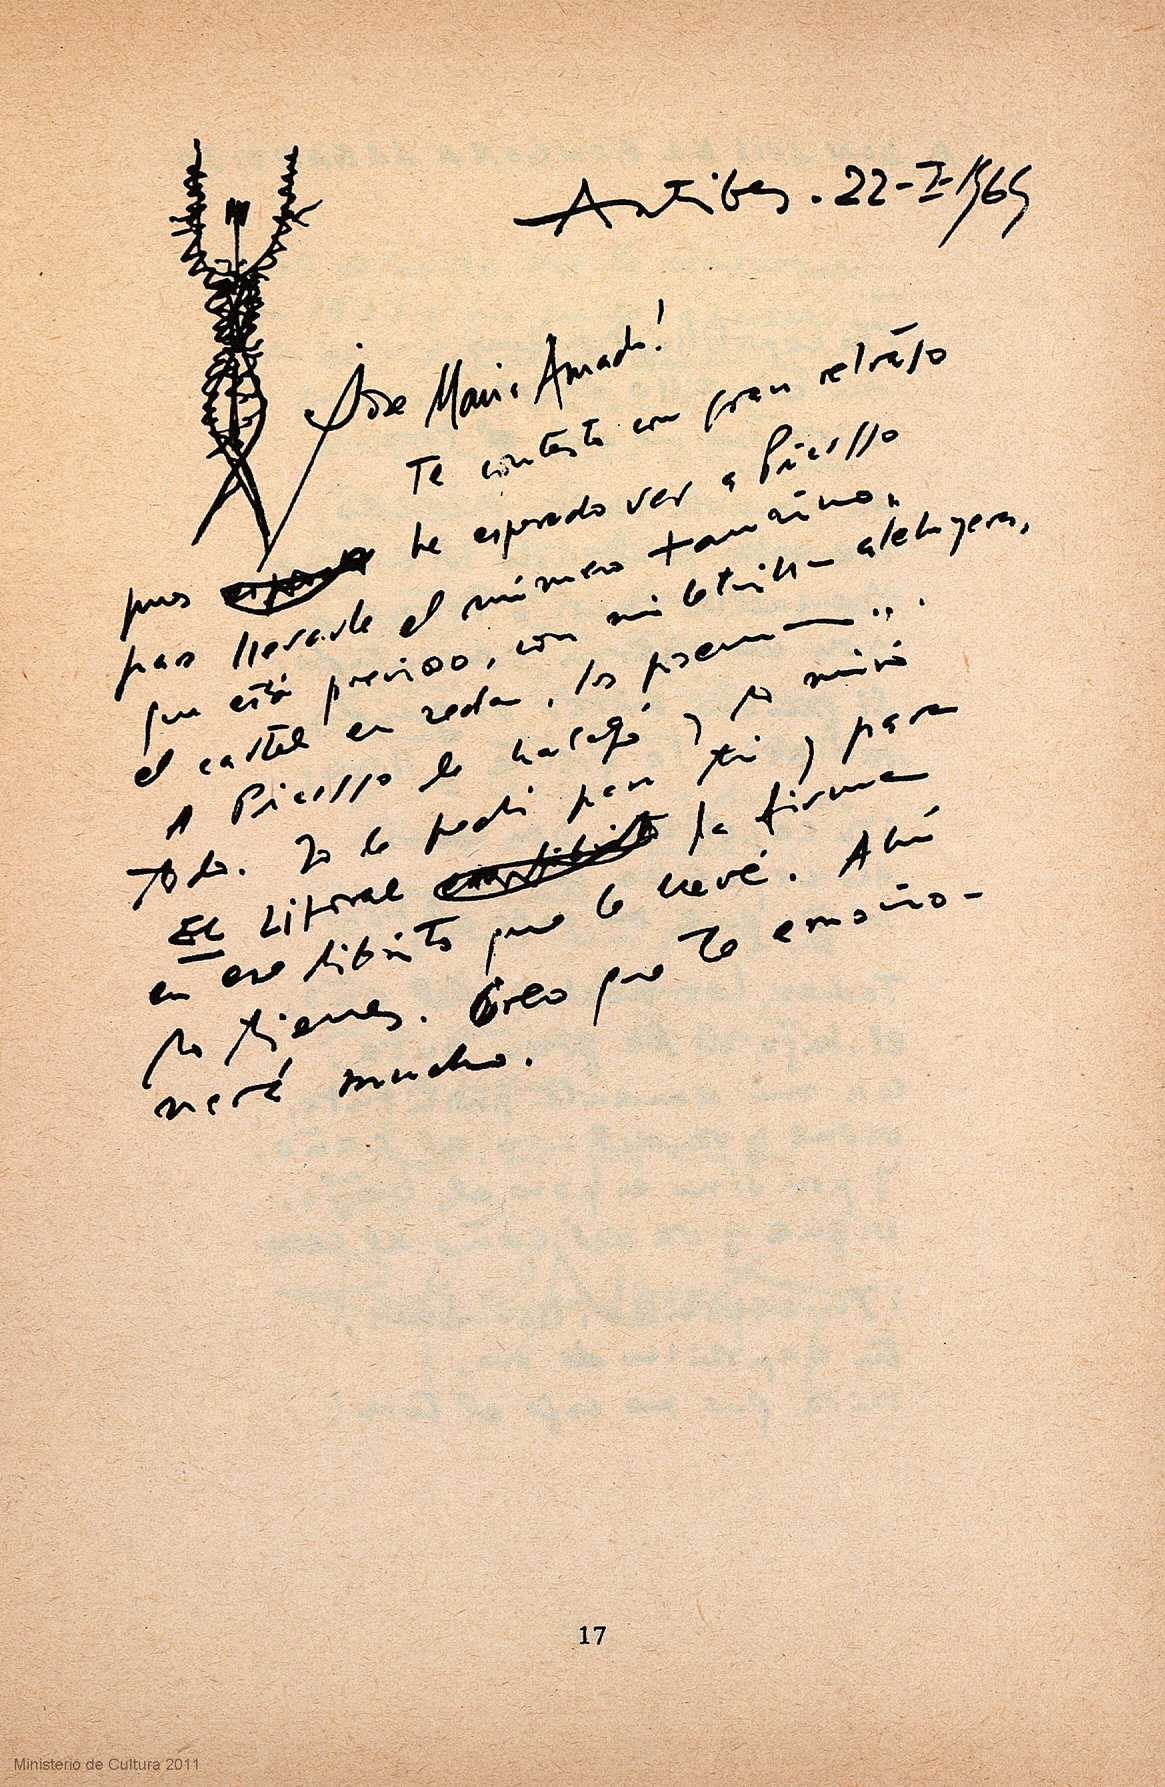 Antibes. 22-I-1969
¡Jose Maria Amado!
Te contesto con gran retraso
pues he esperado ver a Picasso
para llevarle el número taurino,
que está precioso, con mi letrilla aleluyera,
el cartel en redon, los poemas...
A Picasso le halagó y lo miró
todo. Yo le pedí para ti y para
EL Litoral la firma
en ese librito que le llevé. Ahí
lo tienes. Creo que te emocio-
nará mucho.
17
Ministerio de Cultura 2011